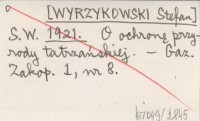 [WYRZYKOWSKI Stefan]
S.W. 1921. O ochronę przy-
rody tatrzańskiej. – Gaz.
Zakop. 1, nr 8.